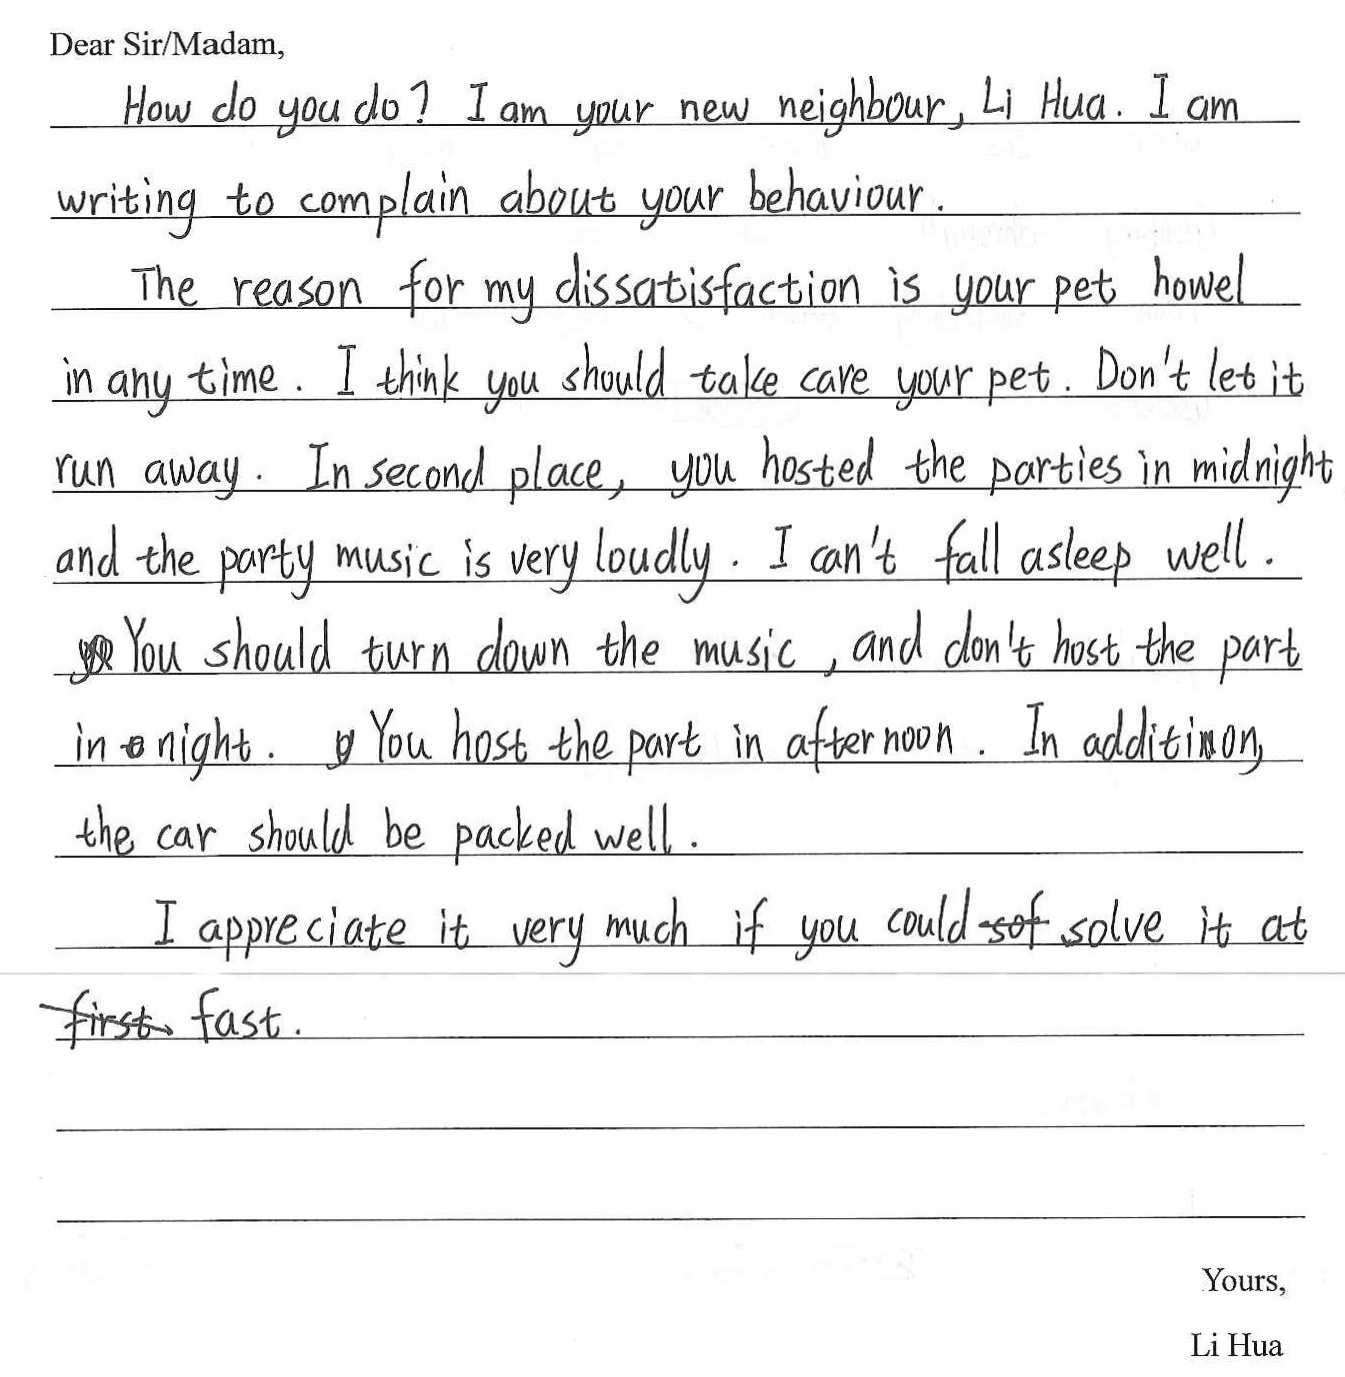 Dear Sir/Madam,
How do you do? I am your new neighbour, Li Hua. I am
writing to complain about your behaviour.
The reason for my dissatisfaction is your pet howel
in any time. I think you should take care your pet. Don't let it
run away. In second place, you hosted the parties in midnight
and the party music is very loudly. I can't fall asleep well.
You should turn down the music, and don't host the part
in night. You host the part in afternoon. In addition,
the car should be packed well.
I appreciate it very much if you could sof solve it at
first fast.
Yours,
Li Hua